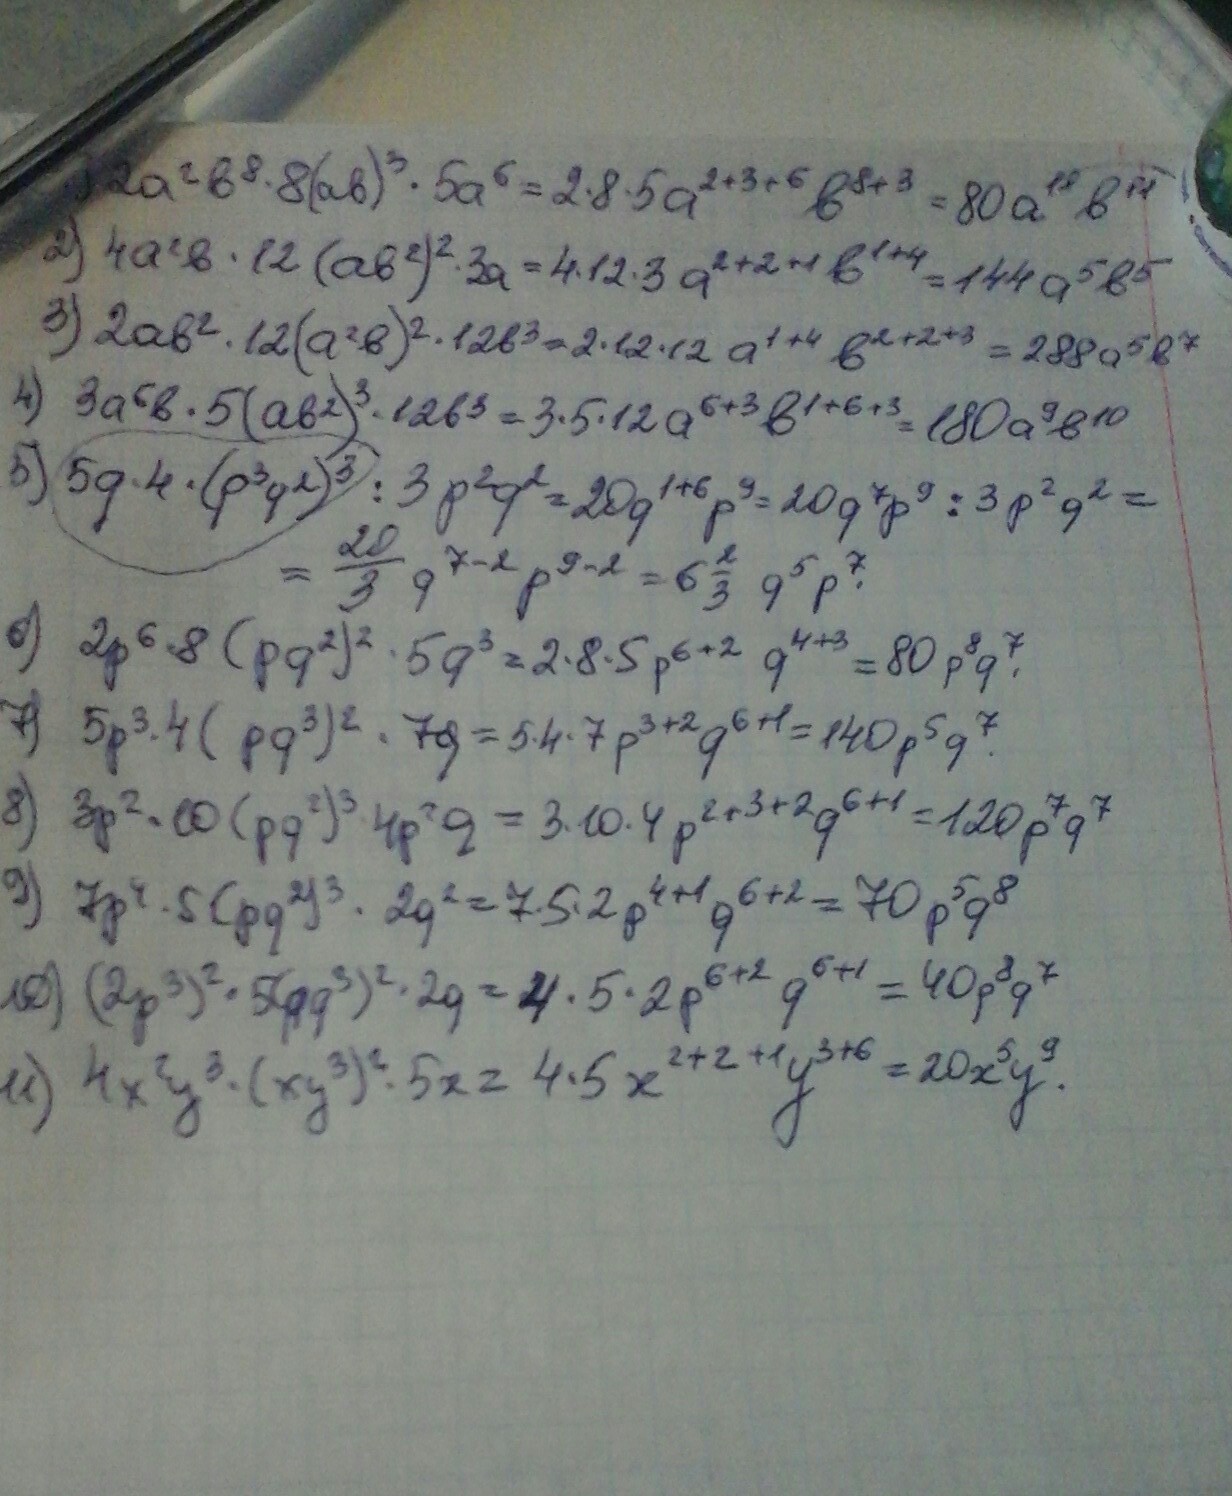 1) 2a²b⁸·8(ab)³·5a⁶=2·8·5a²⁺³⁺⁶b⁸⁺³=80a¹¹b¹¹
2) 4a²b·12(ab²)²·3a=4·12·3a²⁺²⁺¹b¹⁺⁴=144a⁵b⁵
3) 2ab²·12(a²b)²·12b³=2·12·12a¹⁺⁴b²⁺²⁺³=288a⁵b⁷
4) 3a⁶b·5(ab²)³·12b³=3·5·12a⁶⁺³b¹⁺⁶⁺³=180a⁹b¹⁰
5) 5q·4·(p³q²)³:3p²q²=20q¹⁺⁶p⁹=20q⁷p⁹:3p²q²=
=20/3 q⁷⁻²p⁹⁻²=6 2/3 q⁵p⁷.
6) 2p⁶·8(pq²)²·5q³=2·8·5p⁶⁺²q⁴⁺³=80p⁸q⁷.
7) 5p³·4(pq³)²·7q=5·4·7p³⁺²q⁶⁺¹=140p⁵q⁷.
8) 3p²·10(pq²)³·4p²q=3·10·4p²⁺³⁺²q⁶⁺¹=120p⁷q⁷
9) 7p⁴·5(pq²)³·2q²=7·5·2p⁴⁺¹q⁶⁺²=70p⁵q⁸
10) (2p³)²·5(pq³)²·2q=4·5·2p⁶⁺²q⁶⁺¹=40p⁸q⁷
11) 4x²y³·(xy³)²·5x=4·5x²⁺²⁺¹y³⁺⁶=20x⁵y⁹.